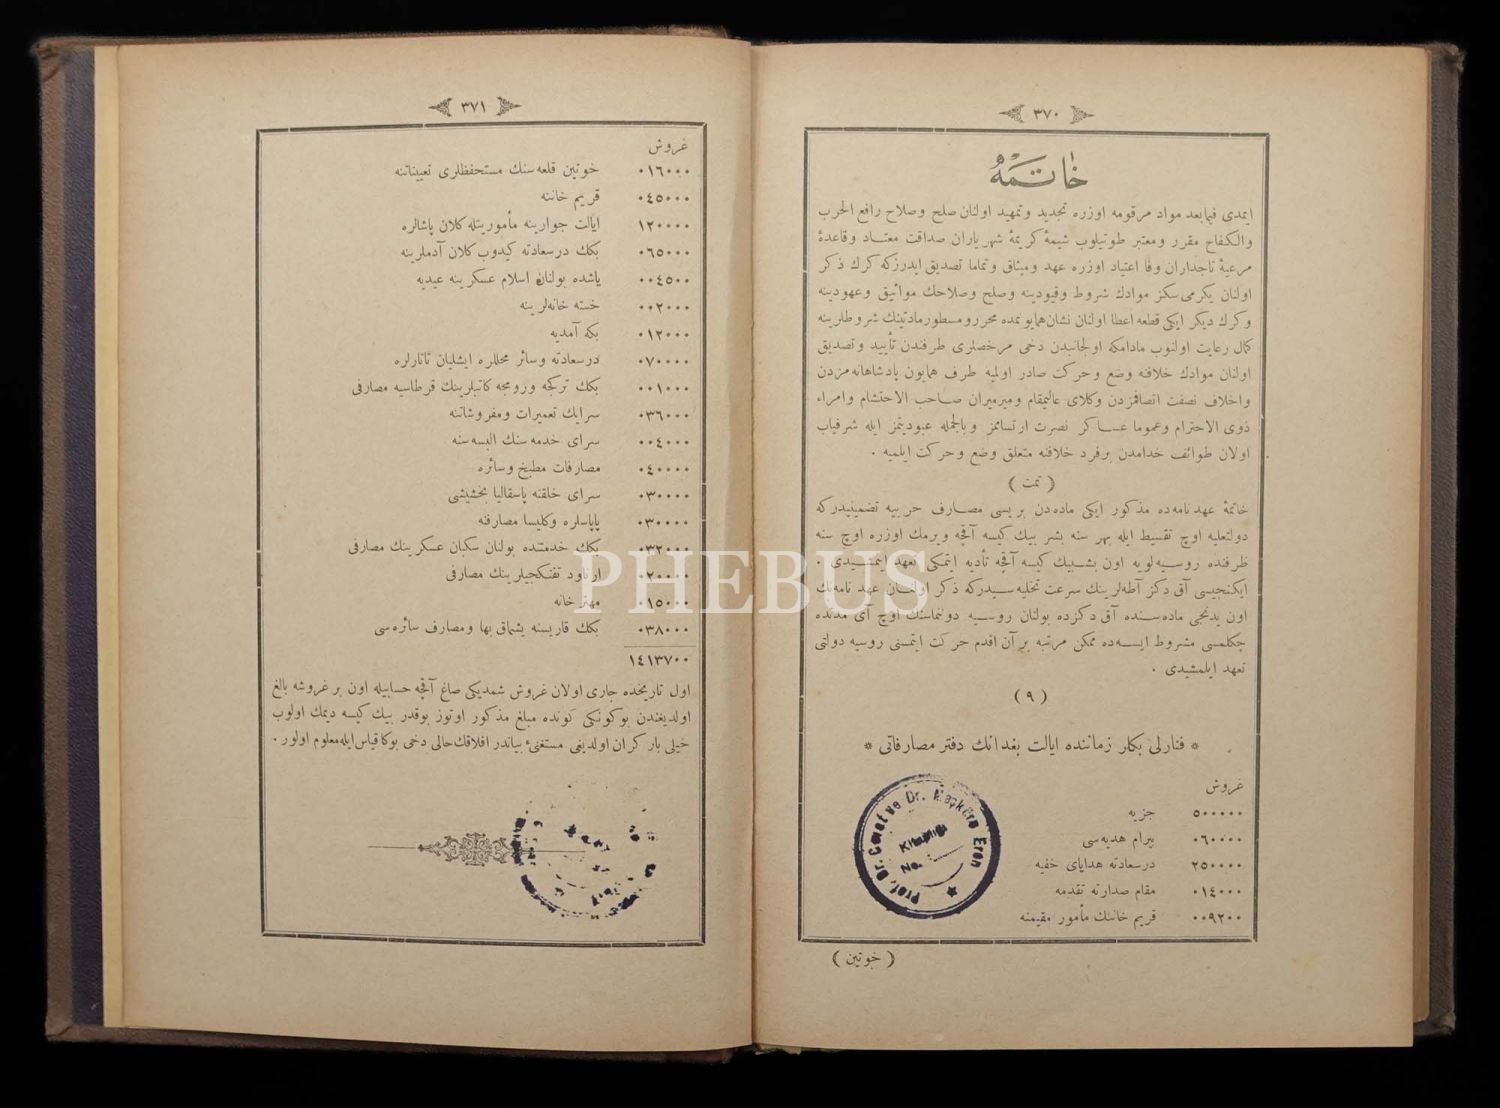 ٣٧٠
خاتمه
ايمدى فيمابعد مواد مرقومه اوزره تجديد وتمهيد اولنان صلح وصلاح رافع الحرب
والكفاح مقرر ومعتبر طوتيلوب شيمهٔ كريمهٔ شهرياران صداقت معتاد وقاعدهٔ
مرعيهٔ تاجداران وفا اعتياد اوزره عهد وميثاق وتماما تصديق ايدرزكه كرك ذكر
اولنان يكرمى سكز موادك شروط وقيودينه وصلح وصلاحك مواثيق وعهودينه
وكرك ديكر ايكى قطعه اعطا اولنان نشان همايونمده محرر ومسطور مادتينك شروطلرينه
كمال رعايت اولنوب مادامكه اولجانبدن دخى مرخصلرى طرفندن تأييد وتصديق
اولنان موادك خلافنه وضع وحركت صادر اولميه طرف همايون پادشاهانه‌مزدن
واخلاف نصفت اتصافمزدن وكلاى عاليمقام وميرميران صاحب الاحتشام وامراء
ذوى الاحترام وعموما عساكر نصرت ارتسامز وبالجمله عبوديتمز ايله شرفياب
اولان طوائف خدامدن برفرد خلافنه متعلق وضع وحركت ايلميه .
( تمت )
خاتمهٔ عهدنامه‌ده مذكور ايكى ماده‌دن بريسى مصارف حربيه تضمينيدركه
دولتعليه اوچ تقسيط ايله بهر سنه بشر بيك كيسه آقچه ويرمك اوزره اوچ سنه
ظرفنده روسيه‌لويه اون بشبيك كيسه آقچه تأديه ايتمكى تعهد ايمشيدى .
ايكنجيسى آق دكز آطه‌لرينك سرعت تخليه‌سيدركه ذكر اولنان عهدنامه‌نك
اون يدنجى ماده‌سنده آق دكزده بولنان روسيه دونماسنك اوچ آى مدتده
چكلمسى مشروط ايسه‌ده ممكن مرتبه بر آن اقدم حركت ايتمنى روسيه دولتى
تعهد ايلمشيدى .
( ٩ )
* فنارلى بكلر زماننده ايالت بغدانك دفتر مصارفاتى *
غروش
٥٠٠٠٠٠ جزيه
٠٦٠٠٠٠ بيرام هديه‌سى
٢٥٠٠٠٠ درسعادته هداياى خفيه
٠١٤٠٠٠ مقام صدارته تقدمه
٠٠٩٢٠٠ قريم خاننك مأمور مقيمنه
( خوتين )
Prof. Dr. Cevat ve Dr. Meşkûre Eren
Kitaplığı
No. :
٣٧١
غروش
٠١٦٠٠٠ خوتين قلعه‌سنك مستحفظلرى تعييناتنه
٠٤٥٠٠٠ قريم خاننه
١٢٠٠٠٠ ايالت جوارينه مأموريتله كلان پاشالره
٠٦٥٠٠٠ بكك درسعادته كيدوب كلان آدملرينه
٠٠٤٥٠٠ ياشده بولنان اسلام عسكرينه عيديه
٠٠٢٠٠٠ خسته خانه‌لرينه
٠١٢٠٠٠ بكه آمديه
٠٧٠٠٠٠ درسعادته وسائر محللره ايشليان تاتارلره
٠٠١٠٠٠ بكك تركجه ورومجه كاتبلرينك قرطاسيه مصارفى
٠٣٦٠٠٠ سرايك تعميرات ومفروشاتنه
٠٠٤٠٠٠ سراى خدمه‌سنك البسه‌سنه
٠٤٠٠٠٠ مصارفات مطبخ وسائره
٠٣٠٠٠٠ سراى خلقنه پاسقاليا بخششى
٠٣٠٠٠٠ پاپاسلره وكليسا مصارفنه
٠٣٢٠٠٠ بكك خدمتنده بولنان سكبان عسكرينك مصارفى
٠٢٠٠٠٠ ارناود تفنكجيلرينك مصارفى
٠١٥٠٠٠ مهترخانه
٠٣٨٠٠٠ بكك قاريسنه يشماق بها ومصارف سائره‌سى
١٤١٣٧٠٠
اول تاريخده جارى اولان غروش شمديكى صاغ آقچه حسابيله اون بر غروشه بالغ
اولديغندن بوكونكى كونده مبلغ مذكور اوتوز بوقدر بيك كيسه ديمك اولوب
خيلى باركران اولديغى مستغنئ بياندر افلاقك حالى دخى بوكا قياس ايله معلوم اولور .
PHEBUS